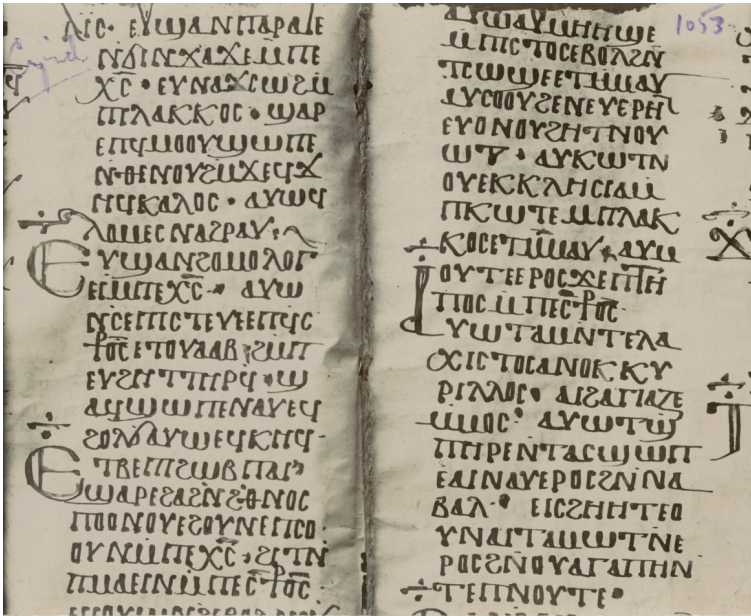 ⲗⲓⲥ · ⲉⲩϣⲁⲛⲡⲁⲣⲁⲇⲉ
ⲛϭⲓⲛϫⲁϫⲉⲙⲡⲉ
ⲭ̅ⲥ̅ · ⲉⲩⲛⲁϫⲥⲱϩⲙ
ⲡⲗⲁⲕⲕⲟⲥ · ϣⲁⲣ
ⲉⲡϥⲙⲟⲟⲩϣⲱⲡⲉ
ⲛⲑⲉⲛⲟⲩϩⲙϫⲉϥϫ
ⲏϥⲕⲁⲗⲟⲥ · ⲁⲩⲱϥ
ⲗⲟⲙⲉⲥⲛⲁϩⲣⲁⲩ
Ⲉⲩϣⲁⲛϩⲟⲙⲟⲗⲟⲅ
ⲉⲓⲙⲡⲉⲭ̅ⲥ̅ · ⲁⲩⲱ
ⲛⲥⲉⲡⲓⲥⲧⲉⲩⲉⲉⲡϥⲥ
ⲣ̅ⲟ̅ⲥ̅ⲉⲧⲟⲩⲁⲁⲃ ϩⲙⲡ
ⲉⲩϩⲏⲧⲧⲏⲣϥ · ϣ
ⲁϥϣⲱⲡⲉⲛⲁⲩⲉϥ
ϩⲟⲗϭⲁⲩⲱⲉϥⲕⲏϥ ·
Ⲉⲧⲃⲉⲡϩⲱⲃⲡⲁⲓ
ⲱⲁⲣⲉϩⲁϩⲛϩⲉⲑⲛⲟⲥ
ⲡⲟⲟⲛⲟⲩⲉϩⲟⲩⲛⲉⲡⲥⲟ
ⲟⲩⲛⲙⲡⲉⲭ̅ⲥ̅ · ϩⲓⲧⲛ
ⲡⲙⲁⲉⲓⲛⲙⲡⲉⲥⲣ̅ⲟ̅ⲥ̅ ·
1053
ⲁⲩⲱⲁⲩⲙⲏⲏϣⲉ
ⲙⲡⲓⲥⲧⲟⲥⲉⲃⲟⲗϩⲛ
ⲧⲥⲱϣⲉⲉⲧⲙⲙⲁⲩ
ⲁⲩⲥⲟⲟⲩϩⲉⲛⲉⲩⲉⲣⲏ
ⲉⲩⲟⲛⲟⲩϩⲏⲧⲛⲟⲩ
ⲱⲧ · ⲁⲩⲕⲱⲧⲛ
ⲟⲩⲉⲕⲕⲗⲏⲥⲓⲁⲙ
ⲡⲕⲱⲧⲉⲙⲡⲗⲁⲕ
ⲕⲟⲥⲉⲧⲙⲙⲁⲩ · ⲁⲩⲙ
ⲟⲩⲧⲉⲉⲣⲟⲥϫⲉⲡⲧⲏ
ⲡⲟⲥⲙⲡⲉⲥⲣ̅ⲟ̅ⲥ̅ ·
ⲁⲩⲱⲧⲁⲙⲛⲧⲉⲗⲁ
ⲭⲓⲥⲧⲟⲥⲁⲛⲟⲕⲕⲩ
ⲣⲓⲗⲗⲟⲥ · ⲁⲓϩⲁⲅⲓⲁⲍⲉ
ⲙⲙⲟⲥ · ⲁⲩⲱⲧϣ
ⲡⲏⲣⲉⲛⲧⲁⲥϣⲱⲡ
ⲉⲁⲓⲛⲁⲩⲉⲣⲟⲥϩⲛⲛⲁ
ⲃⲁⲗ · ⲉⲓⲥϩⲏⲏⲧⲉⲟ
ⲩⲛⲁⲓⲧⲁⲙⲱⲧⲛⲉ
ⲣⲟⲥϩⲛⲟⲩⲁⲅⲁⲡⲏⲛ
ⲧⲉⲡⲛⲟⲩⲧⲉ ·